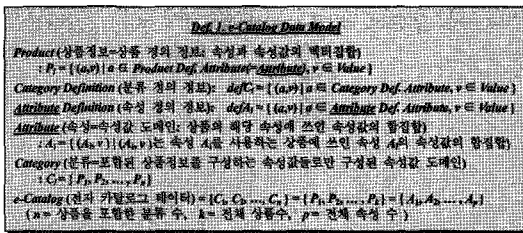 Def. 1. e-Catalog Data Model
Product (상품정보=상품 정의 정보: 속성과 속성값의 벡터집합)
: Pⱼ = { (a,v) | a ∈ Product Def. Attribute(=Attribute), v ∈ Value }
Category Definition (분류 정의 정보): defCᵢ = { (a,v) | a ∈ Category Def. Attribute, v ∈ Value }
Attribute Definition (속성 정의 정보): defAᵢ = { (a,v) | a ∈ Attribute Def. Attribute, v ∈ Value }
Attribute (속성=속성값 도메인: 상품의 해당 속성에 쓰인 속성값의 합집합)
: Aᵢ = { (Aᵢ, v) | (Aᵢ, v)는 속성 Aᵢ를 사용하는 상품에 쓰인 속성 Aᵢ의 속성값의 합집합}
Category (분류=포함된 상품정보를 구성하는 속성값들로만 구성된 속성값 도메인)
: Cᵢ = { P₁, P₂, ... , Pₙ }
e-Catalog (전자 카탈로그 데이터) = {C₁, C₂, ..., Cₙ } = { P₁, P₂, ... , Pₖ } = { A₁, A₂, ... , Aₚ }
( n = 상품을 포함한 분류 수, k = 전체 상품수, p = 전체 속성 수 )